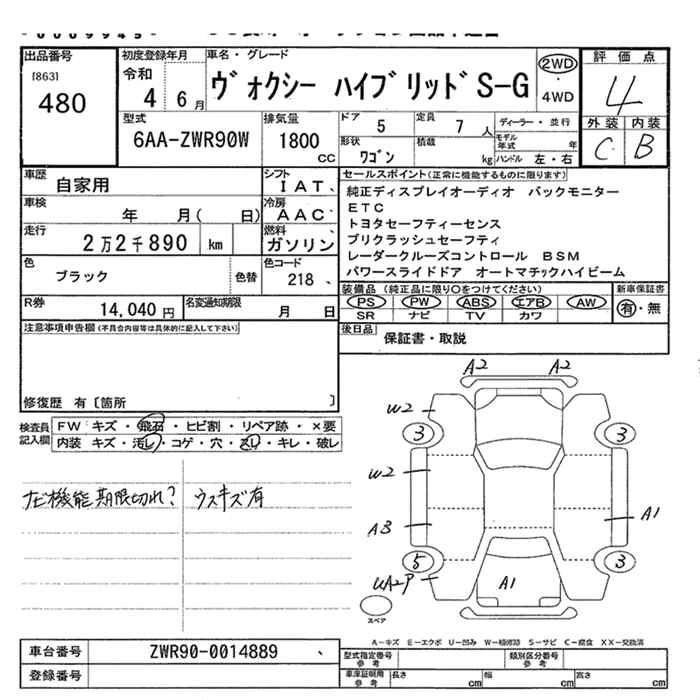 出品番号
[863]
480
初度登録年月
令和
4 6 月
車名・グレード
ヴォクシー ハイブリッドS-G
2WD
4WD
評価点
4
外装 内装
C B
型式
6AA-ZWR90W
排気量
1800
cc
ドア
5
定員
7 人
ディーラー・並行
モデル
年式 年
形状
ワゴン
積載
kg
ハンドル 左・右
車歴
自家用
シフト
IAT、
車検
年 月( 日)
冷房
AAC、
走行
2万2千890 km
燃料
ガソリン
色
ブラック
色替
色コード
218、
R券
14,040 円
名変通知期限
月 日
セールスポイント(正常に機能するものに限ります)
純正ディスプレイオーディオ バックモニター
ETC
トヨタセーフティーセンス
プリクラッシュセーフティ
レーダークルーズコントロール BSM
パワースライドドア オートマチックハイビーム
装備品 (純正品に限り○をつけてください)
PS PW ABS エアB AW
SR ナビ TV カワ
新車保証書
有・無
後日品
保証書・取説
注意事項申告欄(不具合内容等は具体的に記入して下さい)
修復歴 有〔箇所 〕
検査員
記入欄
FW キズ・飛石・ヒビ割・リペア跡・×要
内装 キズ・汚レ・コゲ・穴・スレ・キレ・破レ
ナビ機能期限切れ?
ウスキズ有
A2 A2
W2
3 3
W2
A3 A1
5 3
UA2P A1
スペア
A-キズ E-エクボ U-凹み W-補修跡 S-サビ C-腐食 XX-交換済
車台番号
ZWR90-0014889 、
登録番号
型式指定番号
参考
類別区分番号
参考
車庫証明用
参考
長さ cm
幅 cm
高さ cm